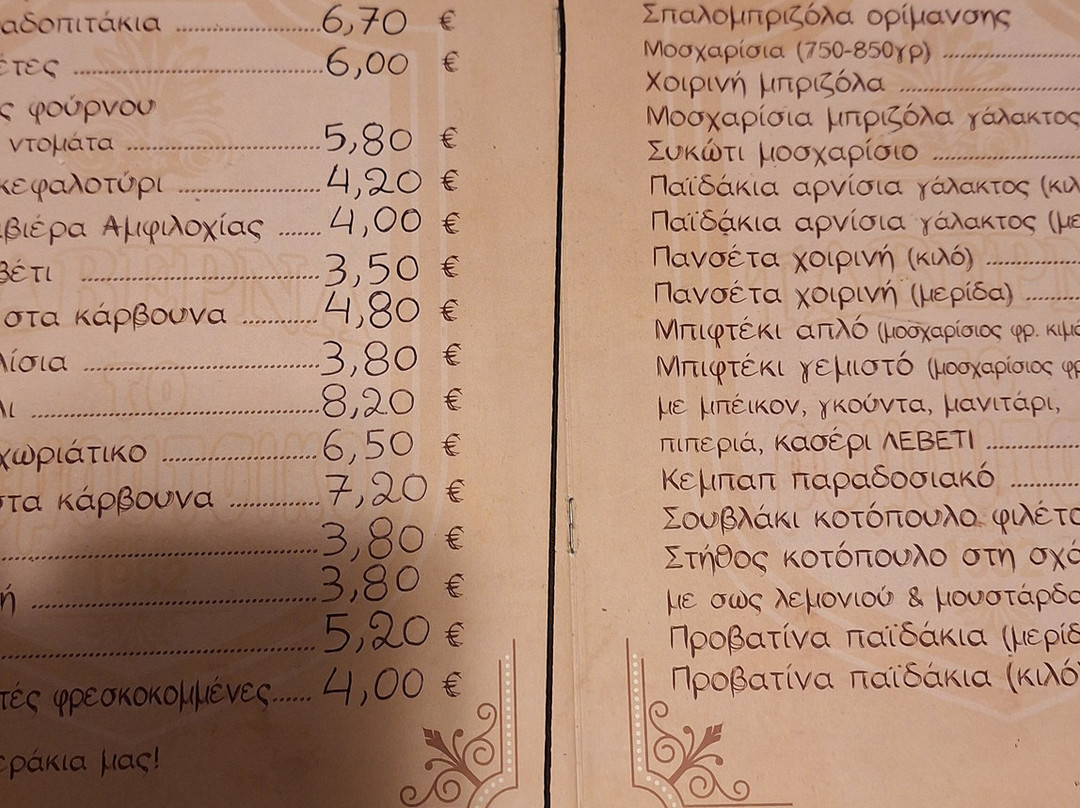 αδοπιτάκια ..................6,70 €
έτες ..................6,00 €
ς φούρνου
ντομάτα ..................5,80 €
κεφαλοτύρι ..................4,20 €
βιέρα Αμφιλοχίας .......4,00 €
βέτι ..................3,50 €
στα κάρβουνα ............4,80 €
λίσια ..................3,80 €
λι ..................8,20 €
χωριάτικο ..................6,50 €
στα κάρβουνα ............7,20 €
..................3,80 €
ή ..................3,80 €
..................5,20 €
τές φρεσκοκομμένες......4,00 €
εράκια μας!
Σπαλομπριζόλα ορίμανσης
Μοσχαρίσια (750-850γρ) ..................
Χοιρινή μπριζόλα ..................
Μοσχαρίσια μπριζόλα γάλακτος
Συκώτι μοσχαρίσιο ..................
Παϊδάκια αρνίσια γάλακτος (κιλ
Παϊδάκια αρνίσια γάλακτος (με
Πανσέτα χοιρινή (κιλό) ............
Πανσέτα χοιρινή (μερίδα) .......
Μπιφτέκι απλό (μοσχαρίσιος φρ. κιμά
Μπιφτέκι γεμιστό (μοσχαρίσιος φρ
με μπέικον, γκούντα, μανιτάρι,
πιπεριά, κασέρι ΛΕΒΕΤΙ ............
Κεμπαπ παραδοσιακό ..........
Σουβλάκι κοτόπουλο φιλέτο
Στήθος κοτόπουλο στη σχά
με σως λεμονιού & μουστάρδα
Προβατίνα παϊδάκια (μερίδ
Προβατίνα παϊδάκια (κιλό)